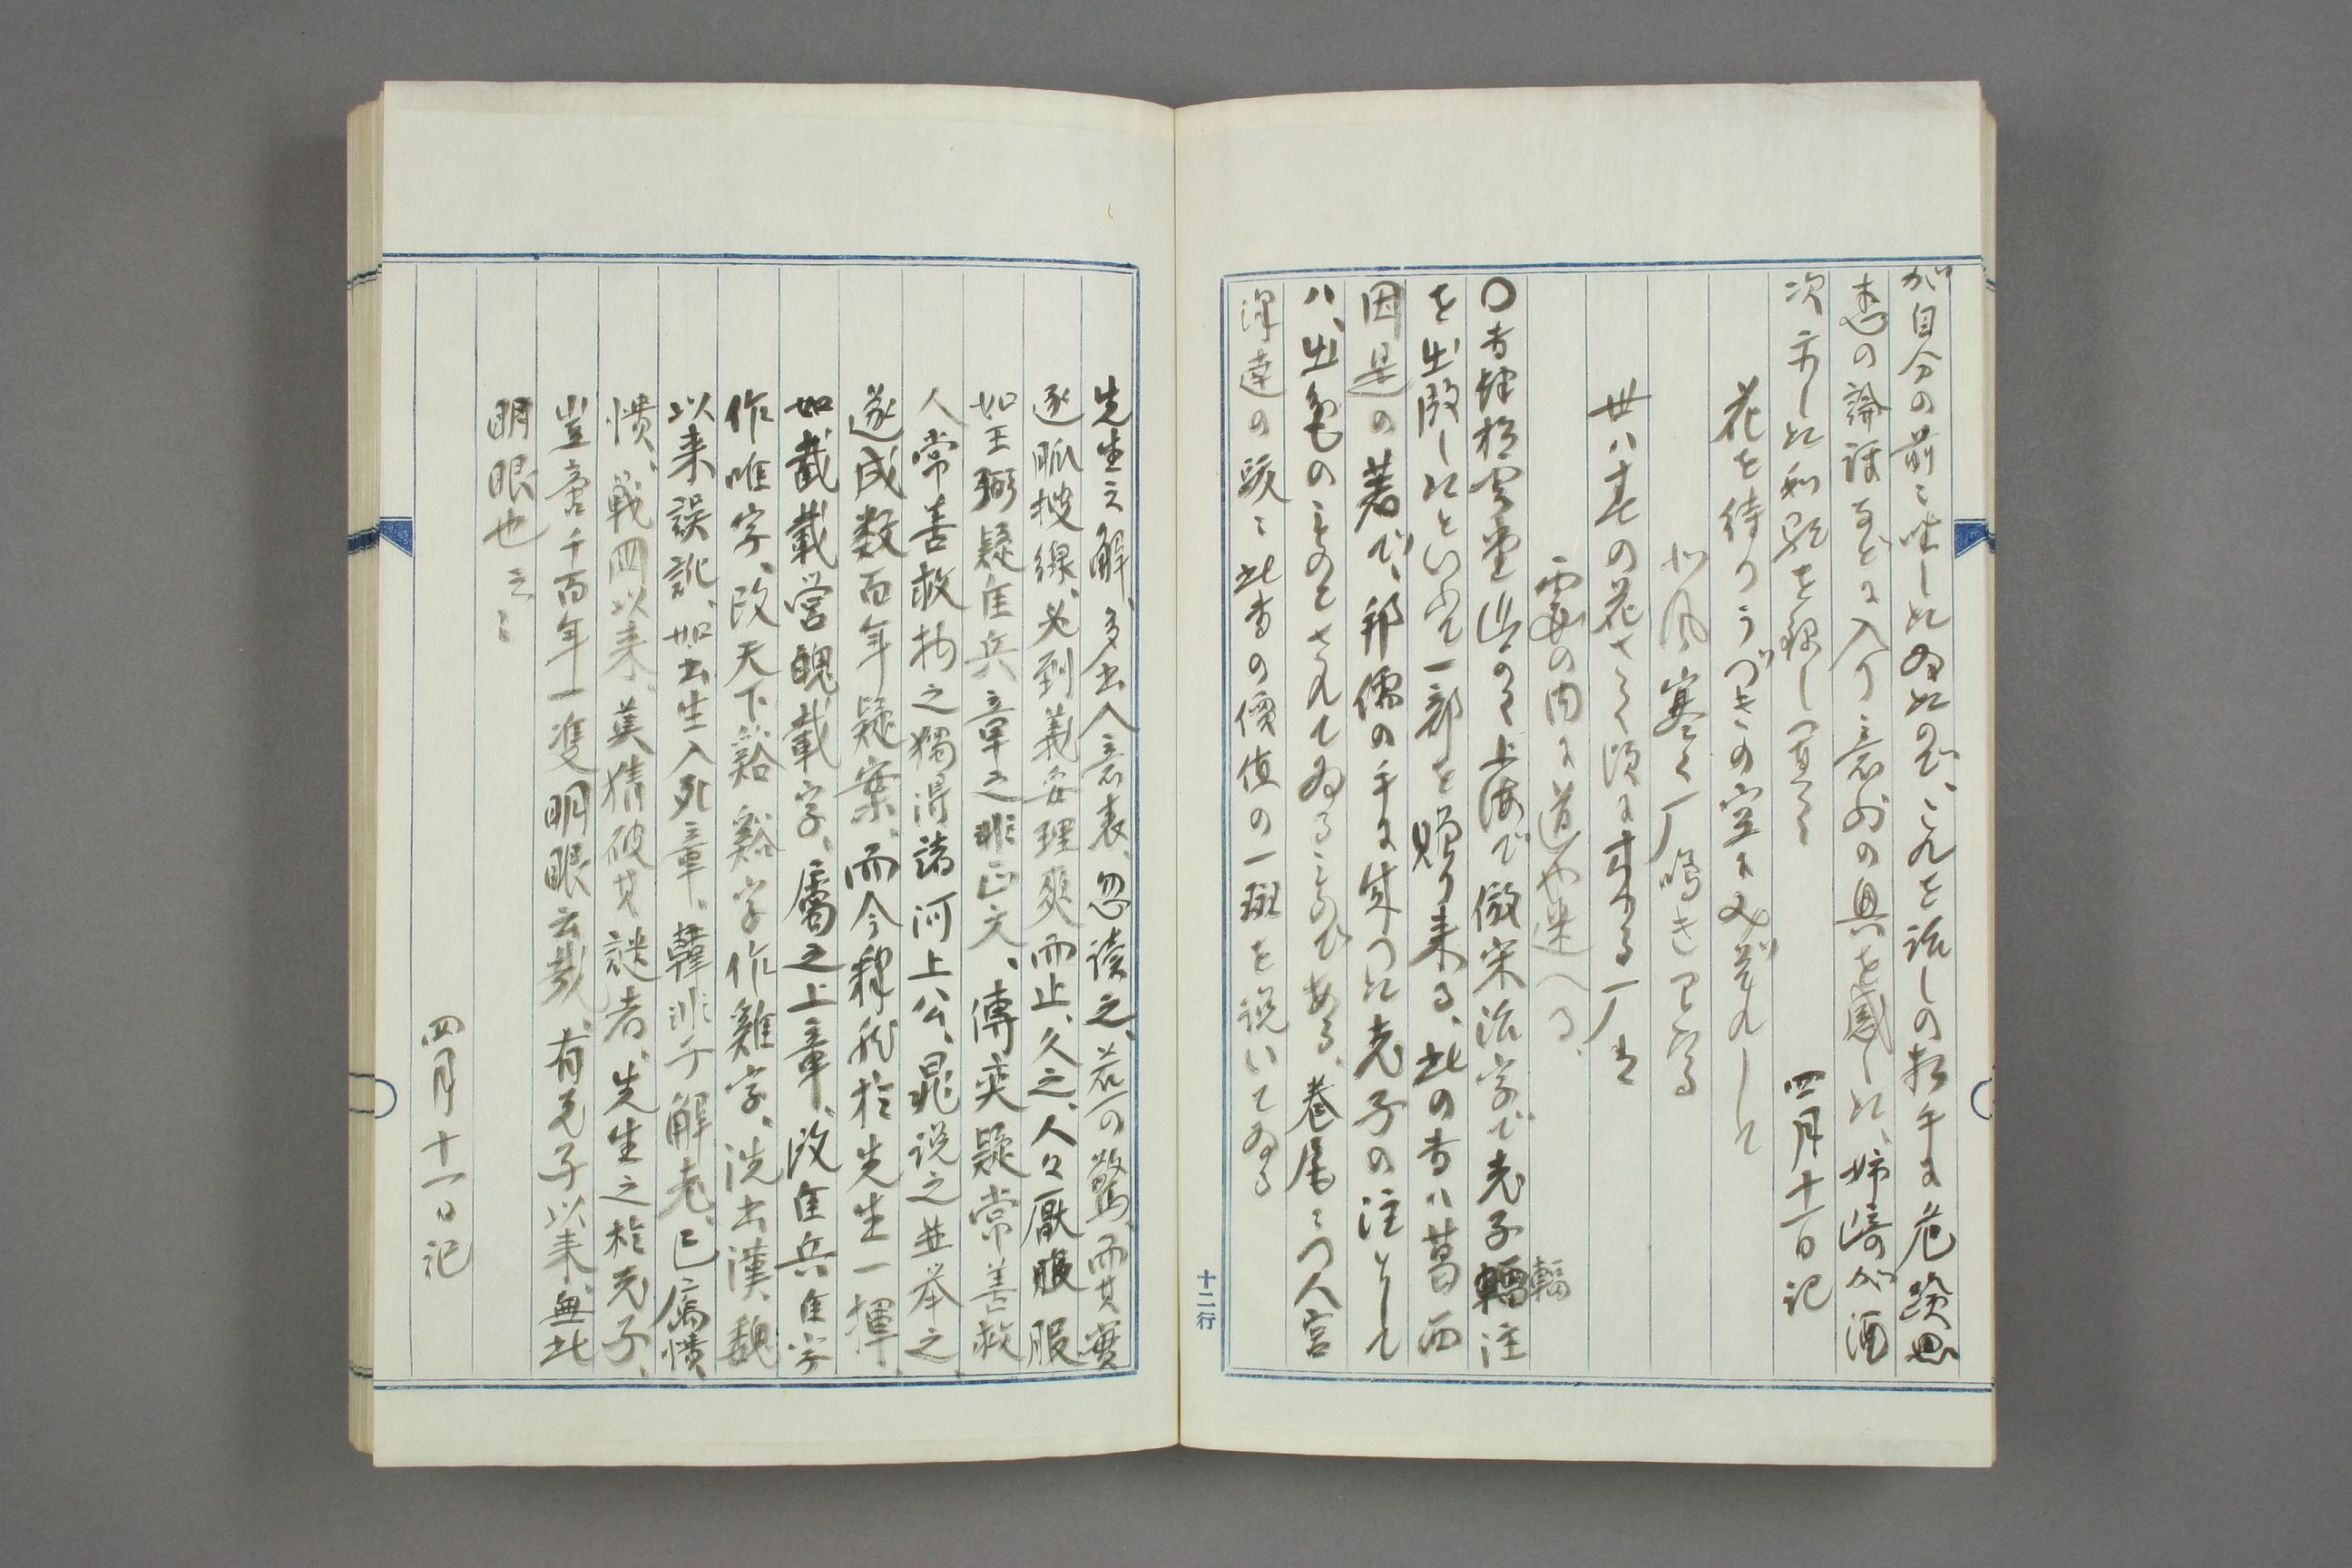 が自分の前に坐しぬぬたので、これを話しの相手に危険思
想の論評などに入り意外の興を感した、姉崎が酒
次示した和歌を録し置く　四月十一日記
花を待つうづきの空にみぞれして
北風寒く厂鳴きわたる
廿八夫の花さく頃に来る厂は
霞の内に道や迷へる、
〇書肆松雲堂此の头上海で倣宋活字で老子輻注
輻
を出版したといふて一部を贈り来る、此の書ハ葛西
因是の著で、邦儒の手に成つた老子の注として
ハ、出色のものとされてゐるものである、巻尾につ人宮
澤達の跋に此書の價値の一斑を説いてゐる
十二行
先生之解、多出入意表、忽読之、若可驚、而其實
逐脈捜線、必到義安理爽而止、久之、人々厭服服
如王弼疑隹兵章之非正文、傅奕疑常善救
人常善救物之獨得諸河上公、晁説之並挙之
遂成数百年疑案、而今釋然於先生一揮
如截載営魄載字、屬之上章、改隹兵隹字
作唯字、改天下谿谿字作雞字、洗出漢魏
以来誤訛、如出生入死章、韓非子解老、已属憒
憒、戦国以来、莫猜破其謎者、先生之於老子、
豈啻千百年一隻明眼云哉、有老子以来、無此
明眼也云々
四月十一日記